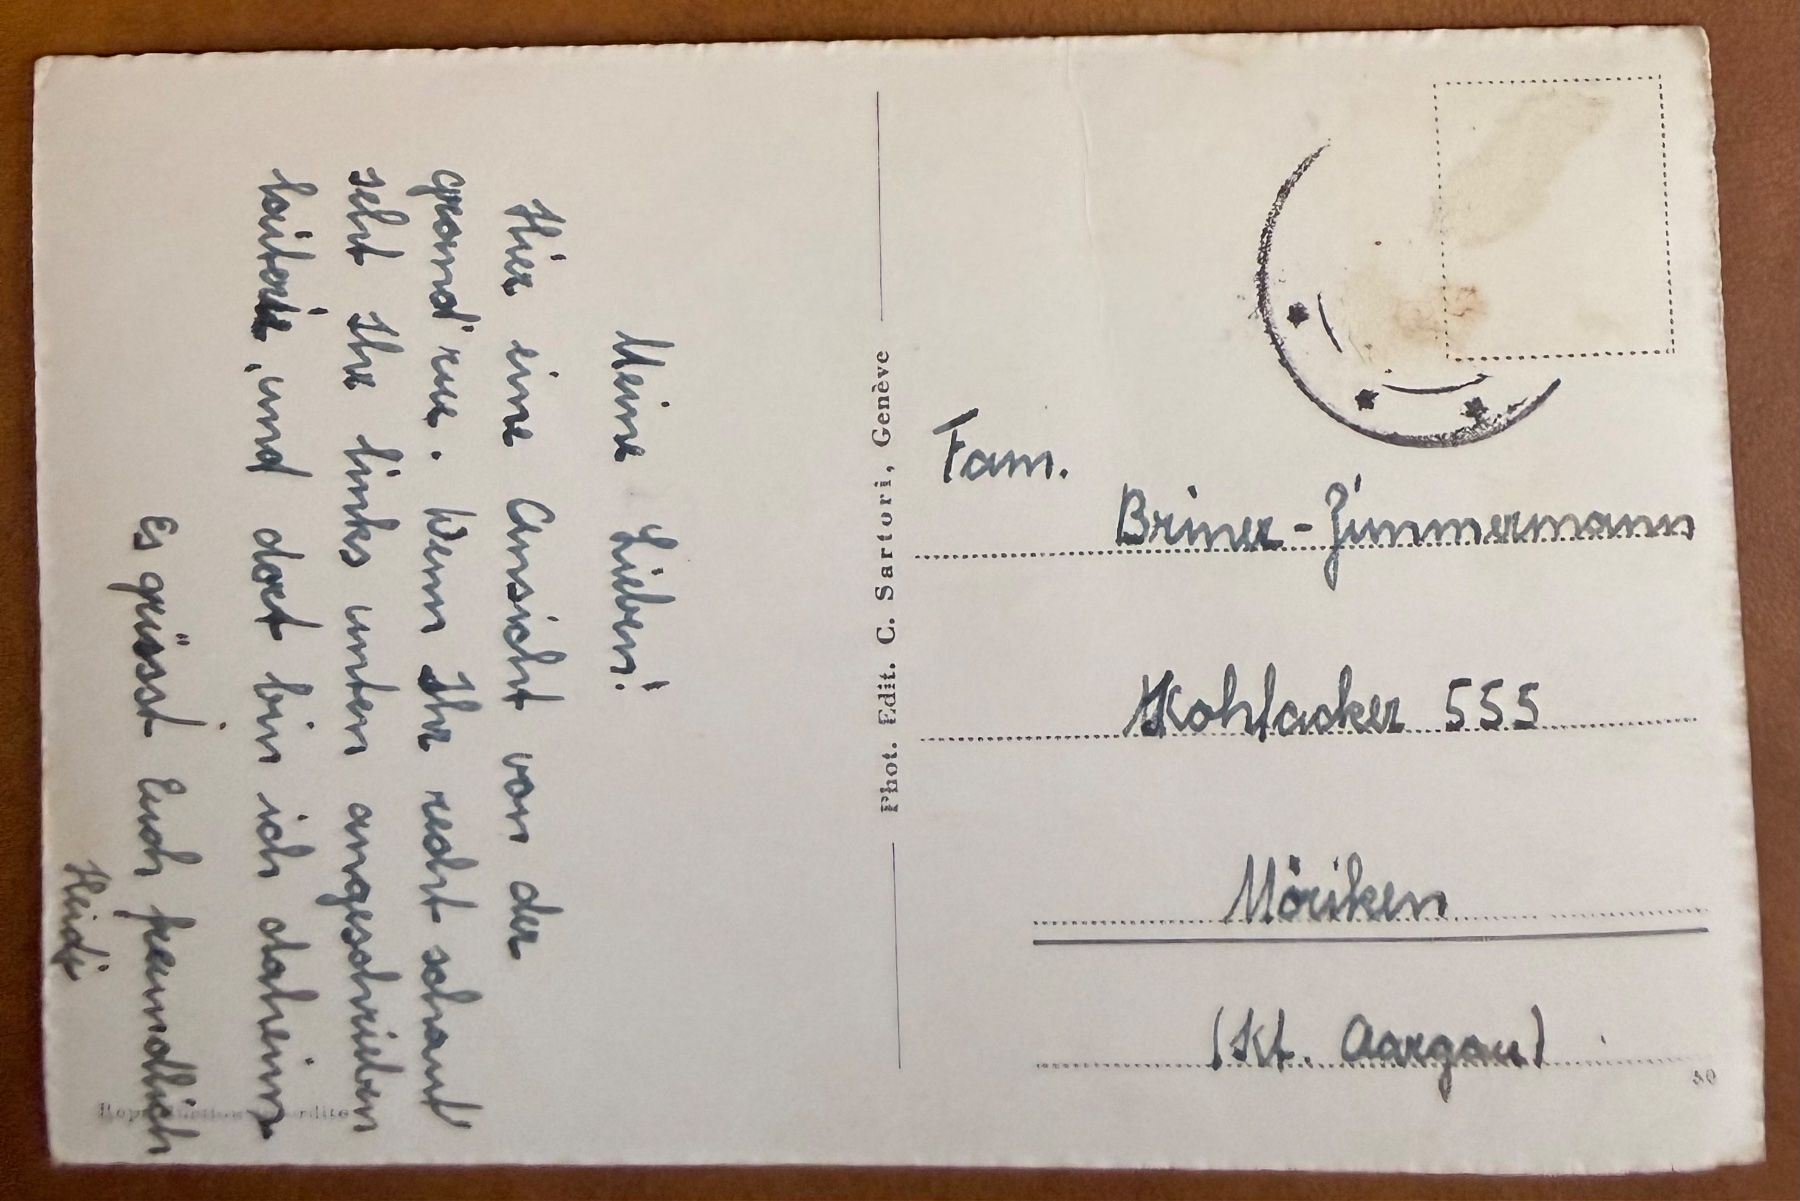 Meine Lieben!
Hier eine Ansicht von der
grand'rue. Wenn Ihr recht schaut
seht Ihr links unten angeschrieben
laiterie, und dort bin ich daheim
Es grüsst Euch freundlich
Heidi
Reproduction interdite
Phot. Edit. C. Sartori, Genève
Fam.
Briner-Zimmermann
Kohlacker 555
Möriken
(Kt. Aargau)